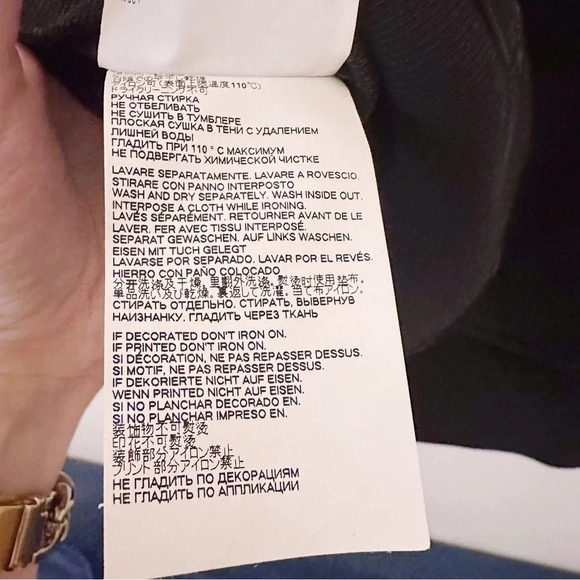 イロン可(表面上限温度110℃)
ドライクリーニング不可
РУЧНАЯ СТИРКА
НЕ ОТБЕЛИВАТЬ
НЕ СУШИТЬ В ТУМБЛЕРЕ
ПЛОСКАЯ СУШКА В ТЕНИ С УДАЛЕНИЕМ
ЛИШНЕЙ ВОДЫ
ГЛАДИТЬ ПРИ 110 ° С МАКСИМУМ
НЕ ПОДВЕРГАТЬ ХИМИЧЕСКОЙ ЧИСТКЕ
LAVARE SEPARATAMENTE. LAVARE A ROVESCIO.
STIRARE CON PANNO INTERPOSTO
WASH AND DRY SEPARATELY. WASH INSIDE OUT.
INTERPOSE A CLOTH WHILE IRONING.
LAVÉS SÉPARÉMENT. RETOURNER AVANT DE LE
LAVER. FER AVEC TISSU INTERPOSÉ.
SEPARAT GEWASCHEN. AUF LINKS WASCHEN.
EISEN MIT TUCH GELEGT
LAVARSE POR SEPARADO. LAVAR POR EL REVÉS.
HIERRO CON PAÑO COLOCADO
分开洗涤及干燥。里翻外洗涤。熨烫时使用垫布。
単品洗い及び乾燥。裏返して洗濯。当て布アイロン。
СТИРАТЬ ОТДЕЛЬНО. СТИРАТЬ, ВЫВЕРНУВ
НАИЗНАНКУ. ГЛАДИТЬ ЧЕРЕЗ ТКАНЬ
IF DECORATED DON'T IRON ON.
IF PRINTED DON'T IRON ON.
SI DÉCORATION, NE PAS REPASSER DESSUS.
SI MOTIF, NE PAS REPASSER DESSUS.
IF DEKORIERTE NICHT AUF EISEN.
WENN PRINTED NICHT AUF EISEN.
SI NO PLANCHAR DECORADO EN.
SI NO PLANCHAR IMPRESO EN.
装饰物不可熨烫
印花不可熨烫
装飾部分アイロン禁止
プリント部分アイロン禁止
НЕ ГЛАДИТЬ ПО ДЕКОРАЦИЯМ
НЕ ГЛАДИТЬ ПО АППЛИКАЦИИ